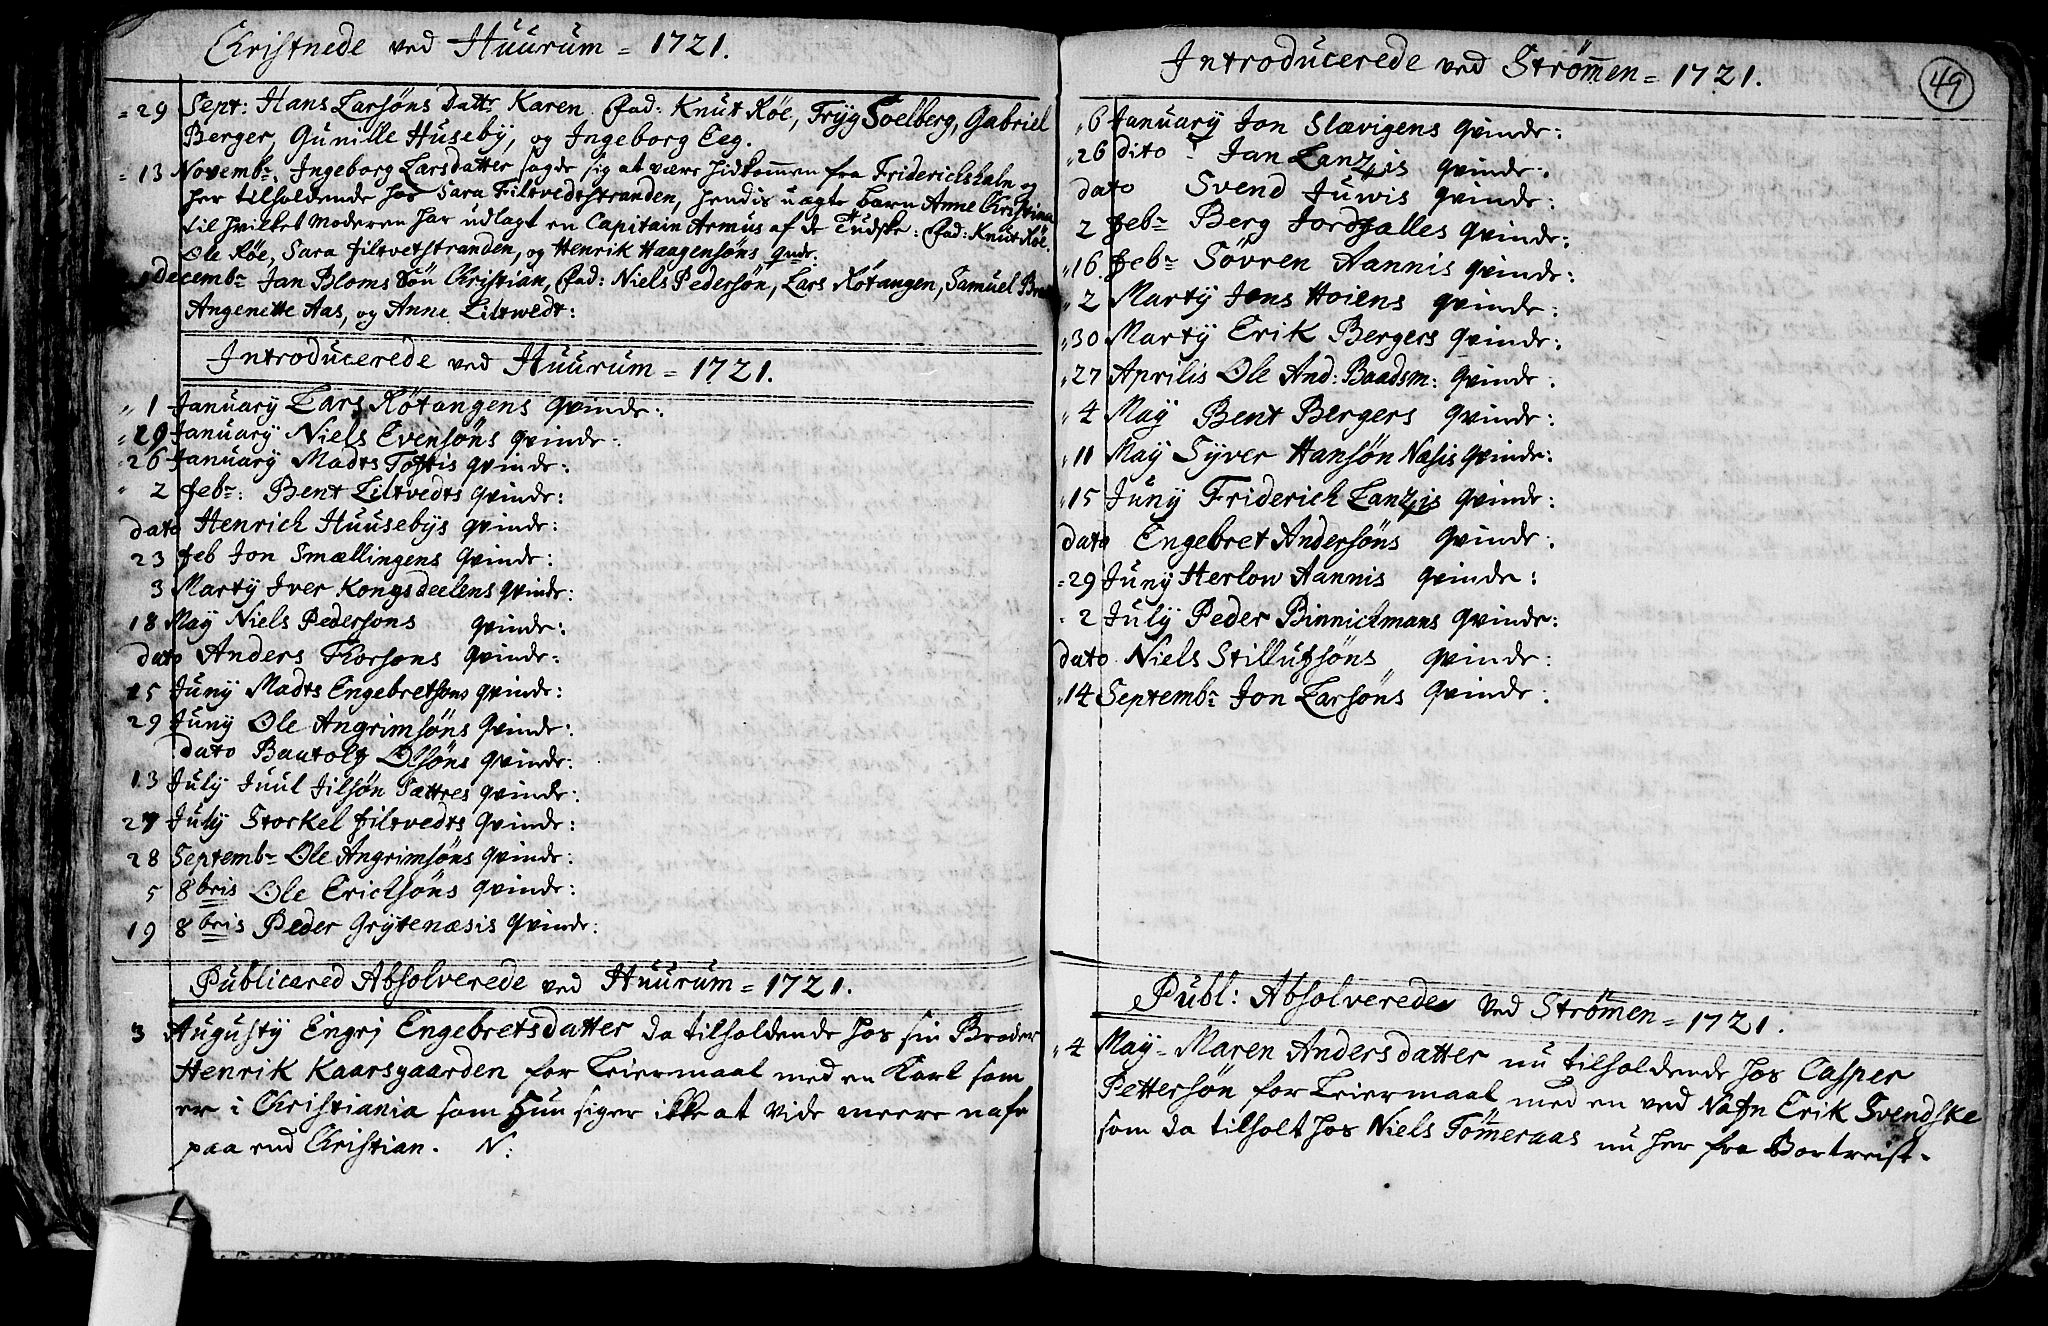 Christnede ved Huurum = 1721.
= 29 Sept: Hans Larsøns Dattr Karen. Fad: Knut Røe, Tryg Soelberg, Gabriel
Berger, Gunille Huseby, og Ingeborg Eeg.
= 13 Novembr: Ingeborg Larsdatter sagde sig at være hidkom̄en fra Friderichshaln og
her tilholdende hos Sara Filtvedtstranden, hendis uægte barn Anne Christina
til hvilket Moderen har udlagt en Capitain Armus af de Tydske: Fad: Knut Røe.
Ole Røe, Sara filtvetstranden, og Henrik Haagensøns qvde.
Decembr Jan Bloms Søn Christian, Fad: Niels Pedersøn, Lars Røtangen, Samuel
Angenette Aas, og Anne Liltwedt:
Introducerede ved Huurum = 1721.
" 1 January Lars Røtangens qvinde:
" 29 January Niels Evensøns qvinde:
" 26 January Madts Toftis qvinde:
" 2 febr: Bent Liltvedts qvinde:
dato Henrich Huusebys qvinde:
23 feb Jon Smællingens qvinde:
3 Marty Iver Kongsdeelens qvinde:
18 May Niels Pedersons qvinde:
dato Anders Thorsons qvinde:
15 Juny Madts Engebretsons qvinde:
29 Juny Ole Angrimsøns qvinde:
dato Bautolf Olsøns qvinde:
13 July Juul Jilsøn Sættres qvinde:
27 July Storkel filtvedts qvinde:
28 Septembr Ole Angrimsøns qvinde:
5 8bris Ole Ericksøns qvinde:
19 8bris Peder Grytenæsis qvinde:
Publicered Absolverede ved Huurum = 1721.
3 Augusty Eingrj Engebretsdatter da tilholdende hos sin Broder
Henrik Kaarsgaarden for Leiermaal med en Karl som
er i Christiania som hun siger ikke at vide meere nafn
paa end Christian. N:
49
Introducerede ved Strøm̄en = 1721.
" 6 January Jon Slævigens qvinde:
" 26 dito Jan Lanzis qvinde:
dato Svend Juwis qvinde:
2 febr Berg Jordfalles qvinde:
" 16 febr Søvren Aannis qvinde:
" 2 Marty Jens Hoiens qvinde:
" 30 Marty Erik Bergers qvinde:
" 27 Aprilis Ole And: Baadsm: qvinde:
" 4 May Bent Bergers qvinde:
" 11 May Syver Hansøn Næsis qvinde:
" 15 Juny Friderich Lanzis qvinde:
dato Engebret Andersøns qvinde:
= 29 Juny Herlow Aannis qvinde:
" 2 July Peder Binnichmans qvinde:
dato Niels Stillufsøns qvinde:
" 14 Septembr Jon Larsøns qvinde:
Publ: Absolverede Ved Strøm̄en = 1721.
" 4 May = Maren Andersdatter nu tilholdende hos Casper
Pettersøn for Leiermaal med en ved Nafn Erik Svendske
som da tilholt hos Niels Tøm̄eraas nu her fra Bortreist.